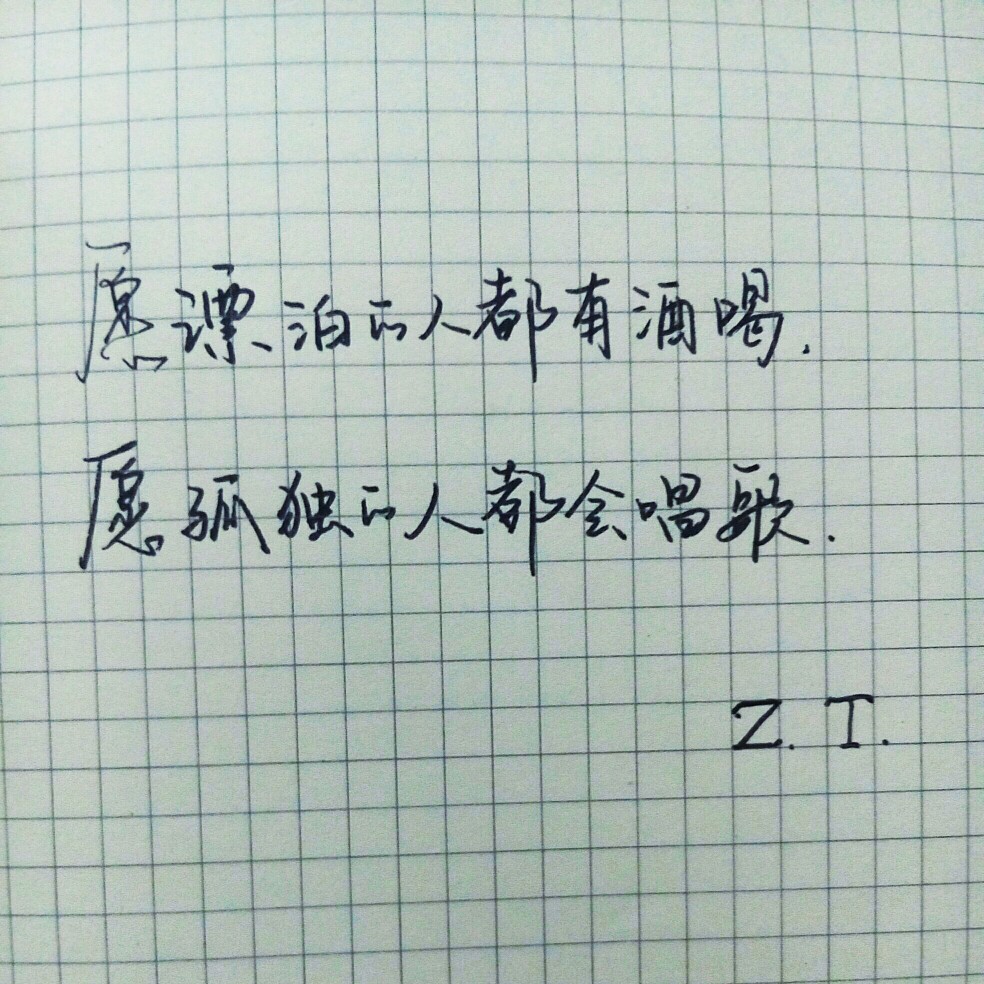 愿漂泊的人都有酒喝.
愿孤独的人都会唱歌.
Z.T.